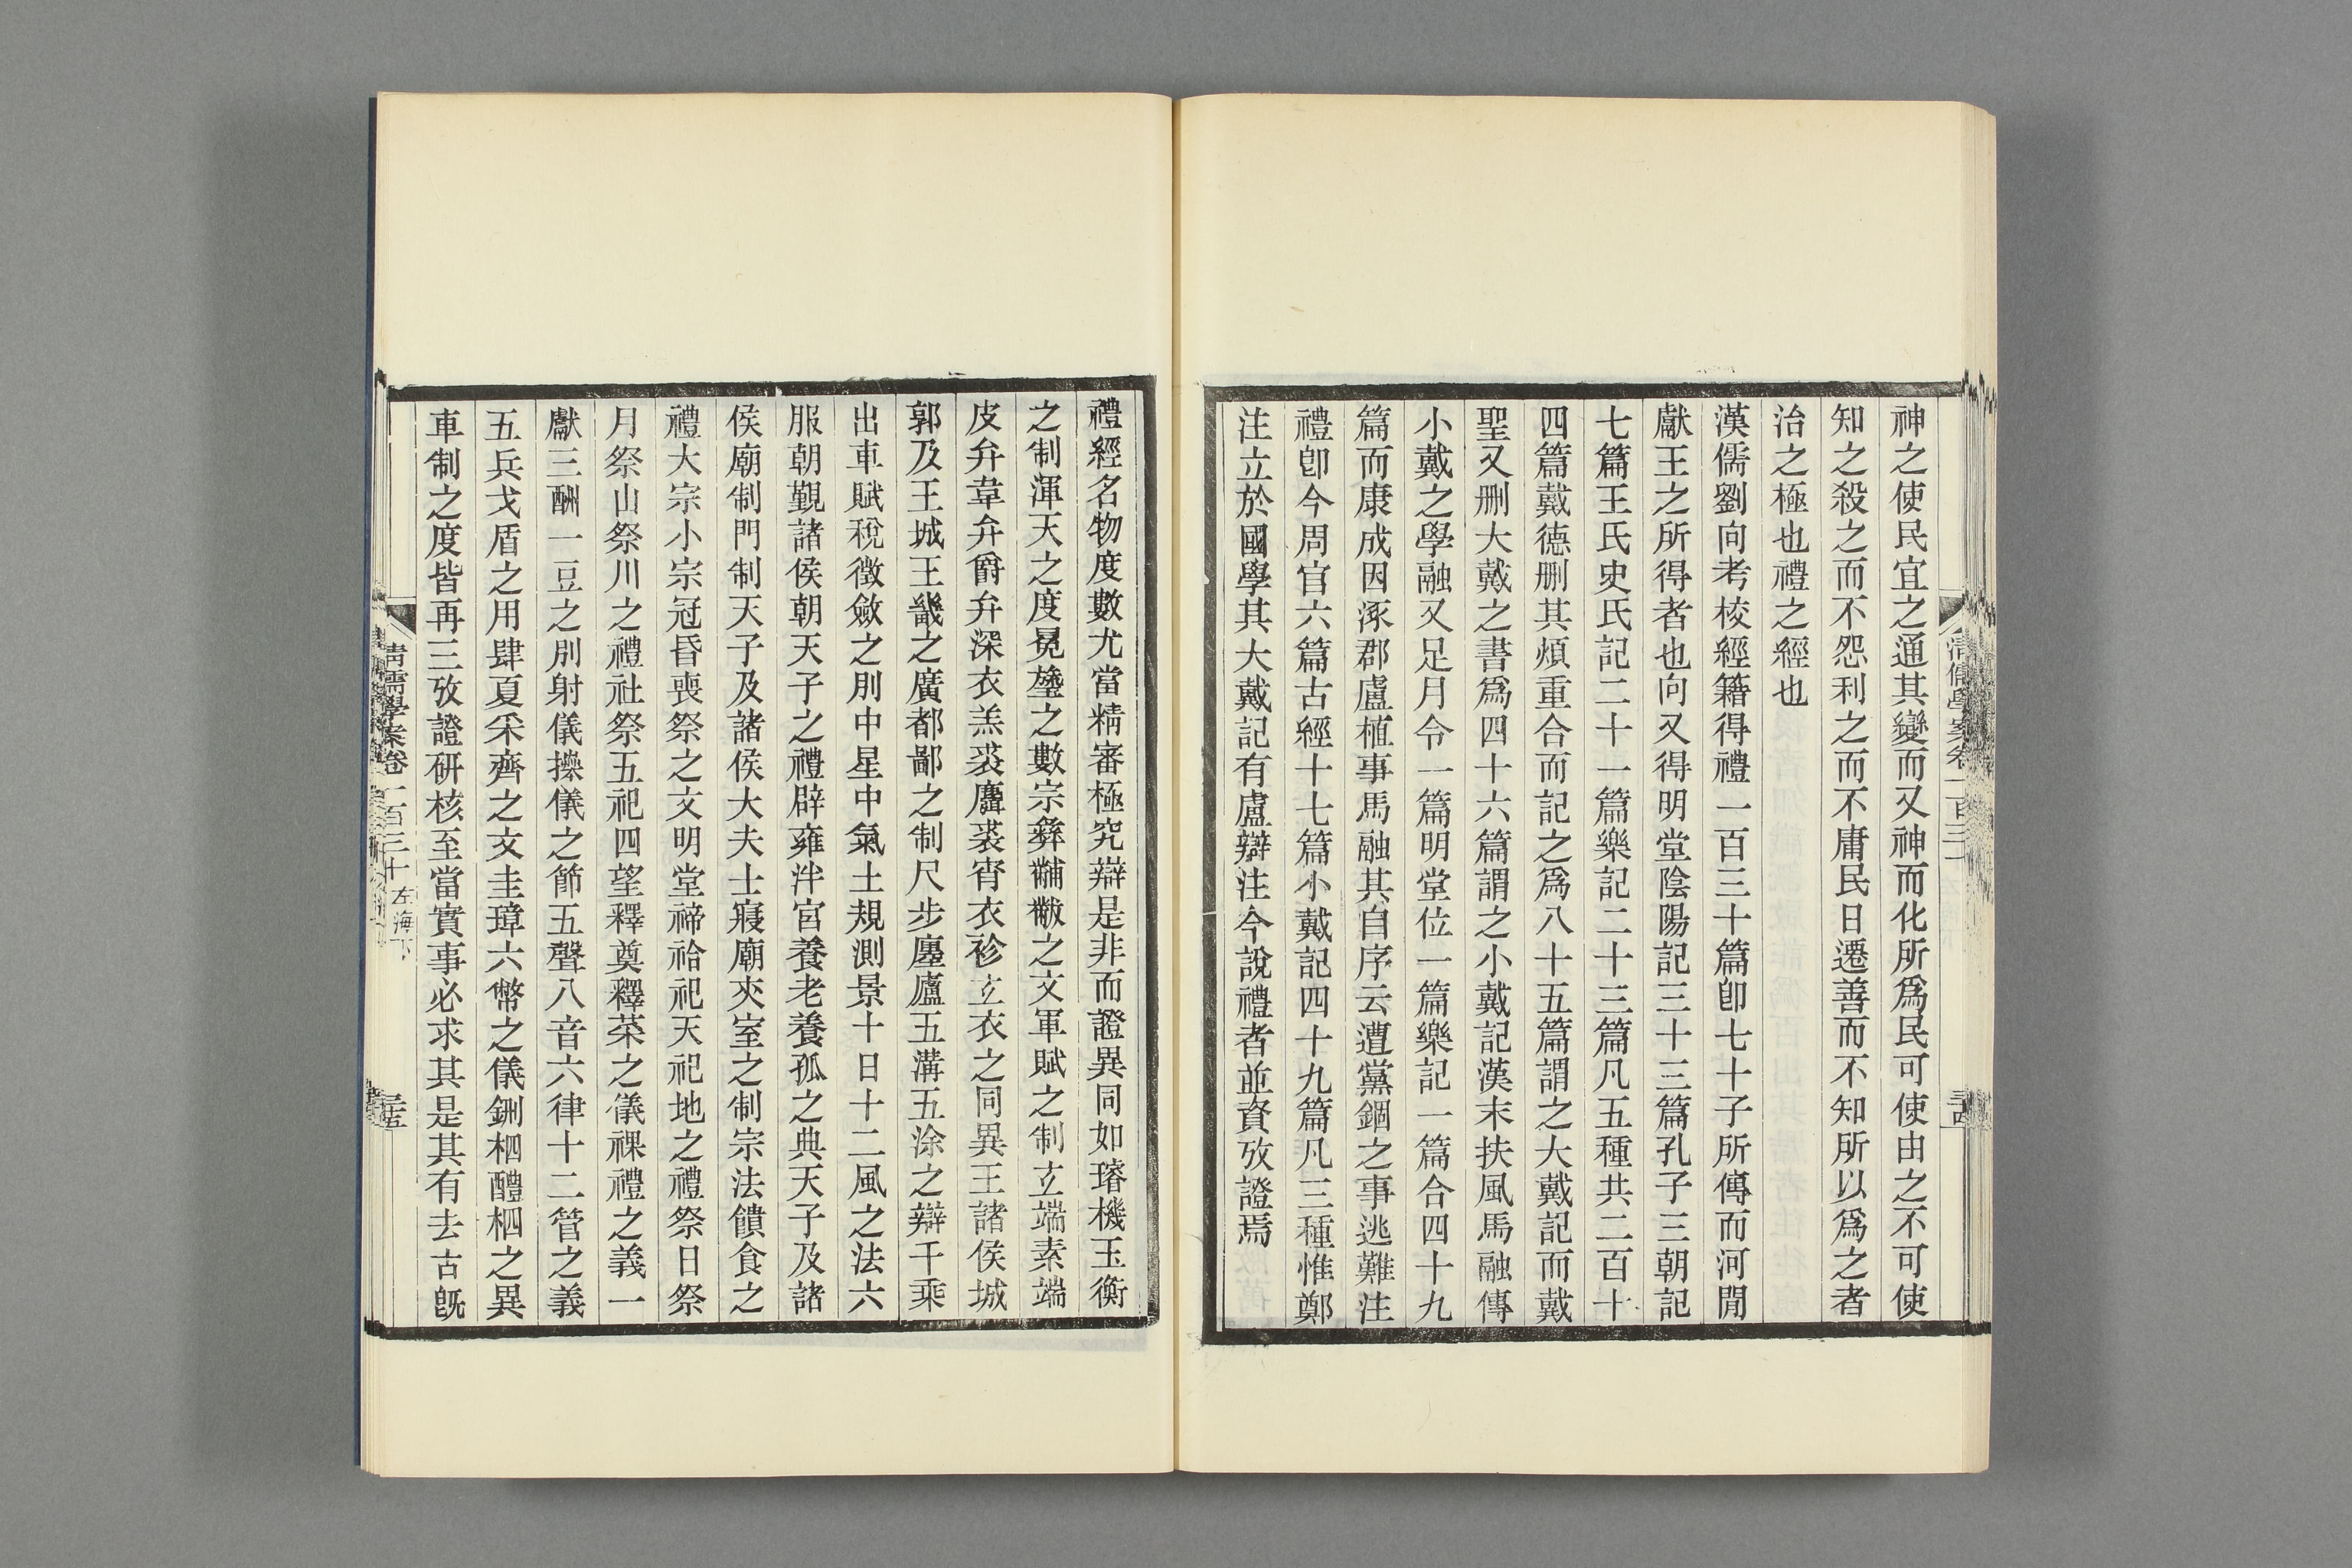 神之使民宜之通其變而又神而化所爲民可使由之不可使
知之殺之而不怨利之而不庸民日遷善而不知所以爲之者
治之極也禮之經也
漢儒劉向考校經籍得禮一百三十篇卽七十子所傳而河閒
獻王之所得者也向又得明堂陰陽記三十三篇孔子三朝記
七篇王氏史氏記二十一篇樂記二十三篇凡五種共二百十
四篇戴德刪其煩重合而記之爲八十五篇謂之大戴記而戴
聖又刪大戴之書爲四十六篇謂之小戴記漢末扶風馬融傳
小戴之學融又足月令一篇明堂位一篇樂記一篇合四十九
篇而康成因涿郡盧植事馬融其自序云遭黨錮之事逃難注
禮卽今周官六篇古經十七篇小戴記四十九篇凡三種惟鄭
注立於國學其大戴記有盧辯注今說禮者並資攷證焉
禮經名物度數尤當精審極究辯是非而證異同如璿機玉衡
之制渾天之度冕璗之數宗彝黼黻之文軍賦之制玄端素端
皮弁韋弁爵弁深衣羔裘麛裘宵衣袗玄衣之同異王諸侯城
郭及王城王畿之廣都鄙之制尺步廛廬五溝五涂之辯千乘
出車賦稅徵斂之別中星中氣土規測景十日十二風之法六
服朝覲諸侯朝天子之禮辟雍泮宮養老養孤之典天子及諸
侯廟制門制天子及諸侯大夫士寢廟夾室之制宗法饋食之
禮大宗小宗冠昏喪祭之文明堂禘祫祀天祀地之禮祭日祭
月祭山祭川之禮社祭五祀四望釋奠釋菜之儀祼禮之義一
獻三酬一豆之別射儀操儀之節五聲八音六律十二管之義
五兵戈盾之用肆夏采齊之文圭璋六幣之儀鉶柶醴柶之異
車制之度皆再三攷證研核至當實事必求其是其有去古旣
清儒學案卷一百三十 左海下
三十五